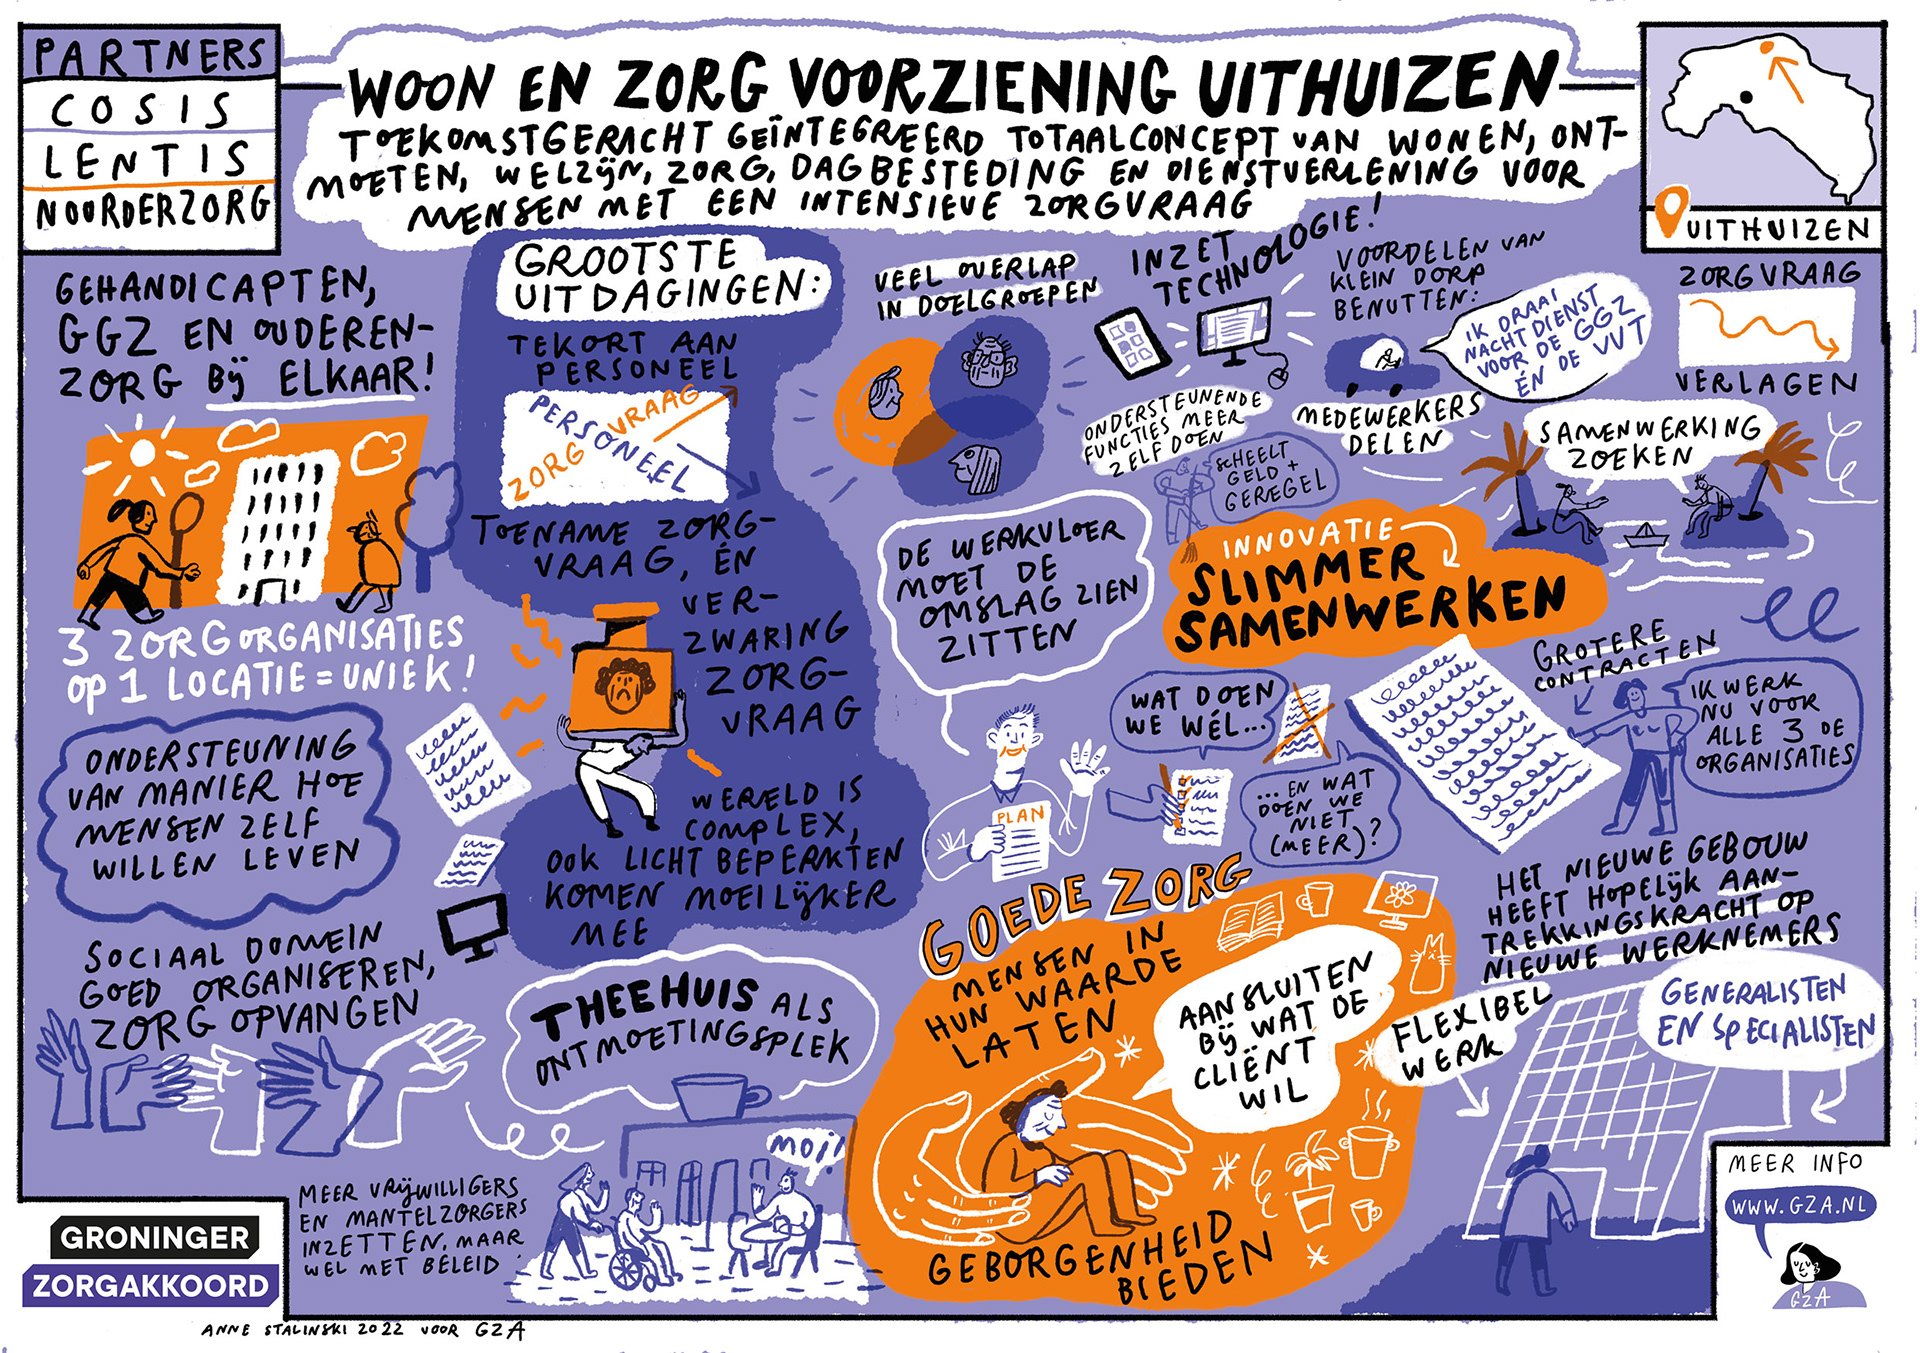 PARTNERS
COSIS
LENTIS
NOORDERZORG
WOON EN ZORG VOORZIENING UITHUIZEN
TOEKOMSTGERACHT GEÏNTEGREERD TOTAALCONCEPT VAN WONEN, ONT-
MOETEN, WELZIJN, ZORG, DAGBESTEDING EN DIENSTVERLENING VOOR
MENSEN MET EEN INTENSIEVE ZORGVRAAG
UITHUIZEN
GEHANDICAPTEN,
GGZ EN OUDEREN-
ZORG BIJ ELKAAR!
3 ZORGORGANISATIES
OP 1 LOCATIE = UNIEK!
ONDERSTEUNING
VAN MANIER HOE
MENSEN ZELF
WILLEN LEVEN
SOCIAAL DOMEIN
GOED ORGANISEREN,
ZORG OPVANGEN
GROOTSTE
UITDAGINGEN:
TEKORT AAN
PERSONEEL
PERSONEEL
ZORGVRAAG
TOENAME ZORG-
VRAAG, ÉN
VER-
ZWARING
ZORG-
VRAAG
WERELD IS
COMPLEX,
OOK LICHT BEPERKTEN
KOMEN MOEILIJKER
MEE
THEEHUIS ALS
ONTMOETINGSPLEK
MOI!
MEER VRIJWILLIGERS
EN MANTELZORGERS
INZETTEN, MAAR
WEL MET BELEID
VEEL OVERLAP
IN DOELGROEPEN
INZET
TECHNOLOGIE!
ONDERSTEUNENDE
FUNCTIES MEER
ZELF DOEN
SCHEELT
GELD +
GEREGEL
VOORDELEN VAN
KLEIN DORP
BENUTTEN:
IK DRAAI
NACHTDIENST
VOOR DE GGZ
ÉN DE VVT
MEDEWERKERS
DELEN
ZORGVRAAG
VERLAGEN
SAMENWERKING
ZOEKEN
INNOVATIE
SLIMMER
SAMENWERKEN
DE WERKVLOER
MOET DE
OMSLAG ZIEN
ZITTEN
PLAN
WAT DOEN
WE WÉL...
... EN WAT
DOEN WE
NIET
(MEER)?
GROTERE
CONTRACTEN
IK WERK
NU VOOR
ALLE 3 DE
ORGANISATIES
HET NIEUWE GEBOUW
HEEFT HOPELIJK AAN-
TREKKINGSKRACHT OP
NIEUWE WERKNEMERS
GOEDE ZORG
MENSEN IN
HUN WAARDE
LATEN
AANSLUITEN
BIJ WAT DE
CLIËNT
WIL
GEBORGENHEID
BIEDEN
FLEXIBEL
WERK
GENERALISTEN
EN SPECIALISTEN
MEER INFO
WWW.GZA.NL
GZA
GRONINGER
ZORGAKKOORD
ANNE STALINSKI 2022 VOOR GZA